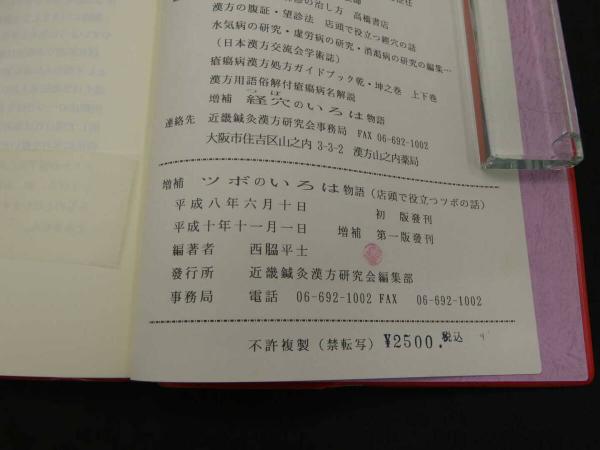 の治し方 高橋書店
漢方の腹証・望診法 店頭で役立つ経穴の話
水気病の研究・虚労病の研究・消渇病の研究の編集…
(日本漢方交流会学術誌)
瘡瘍病漢方処方ガイドブック乾・坤之巻 上下巻
漢方用語俗解付瘡瘍病名解説
つぼ
増補 経穴のいろは物語
連絡先 近畿鍼灸漢方研究会事務局 FAX 06-692-1002
大阪市住吉区山之内 3-3-2 漢方山之内薬局
増補 ツボのいろは物語(店頭で役立つツボの話)
平成八年六月十日 初 版發刊
平成十年十一月一日 増補 第一版發刊
編著者 西脇平士
發行所 近畿鍼灸漢方研究会編集部
事務局 電話 06-692-1002 FAX 06-692-1002
不許複製(禁転写) ¥2500.税込